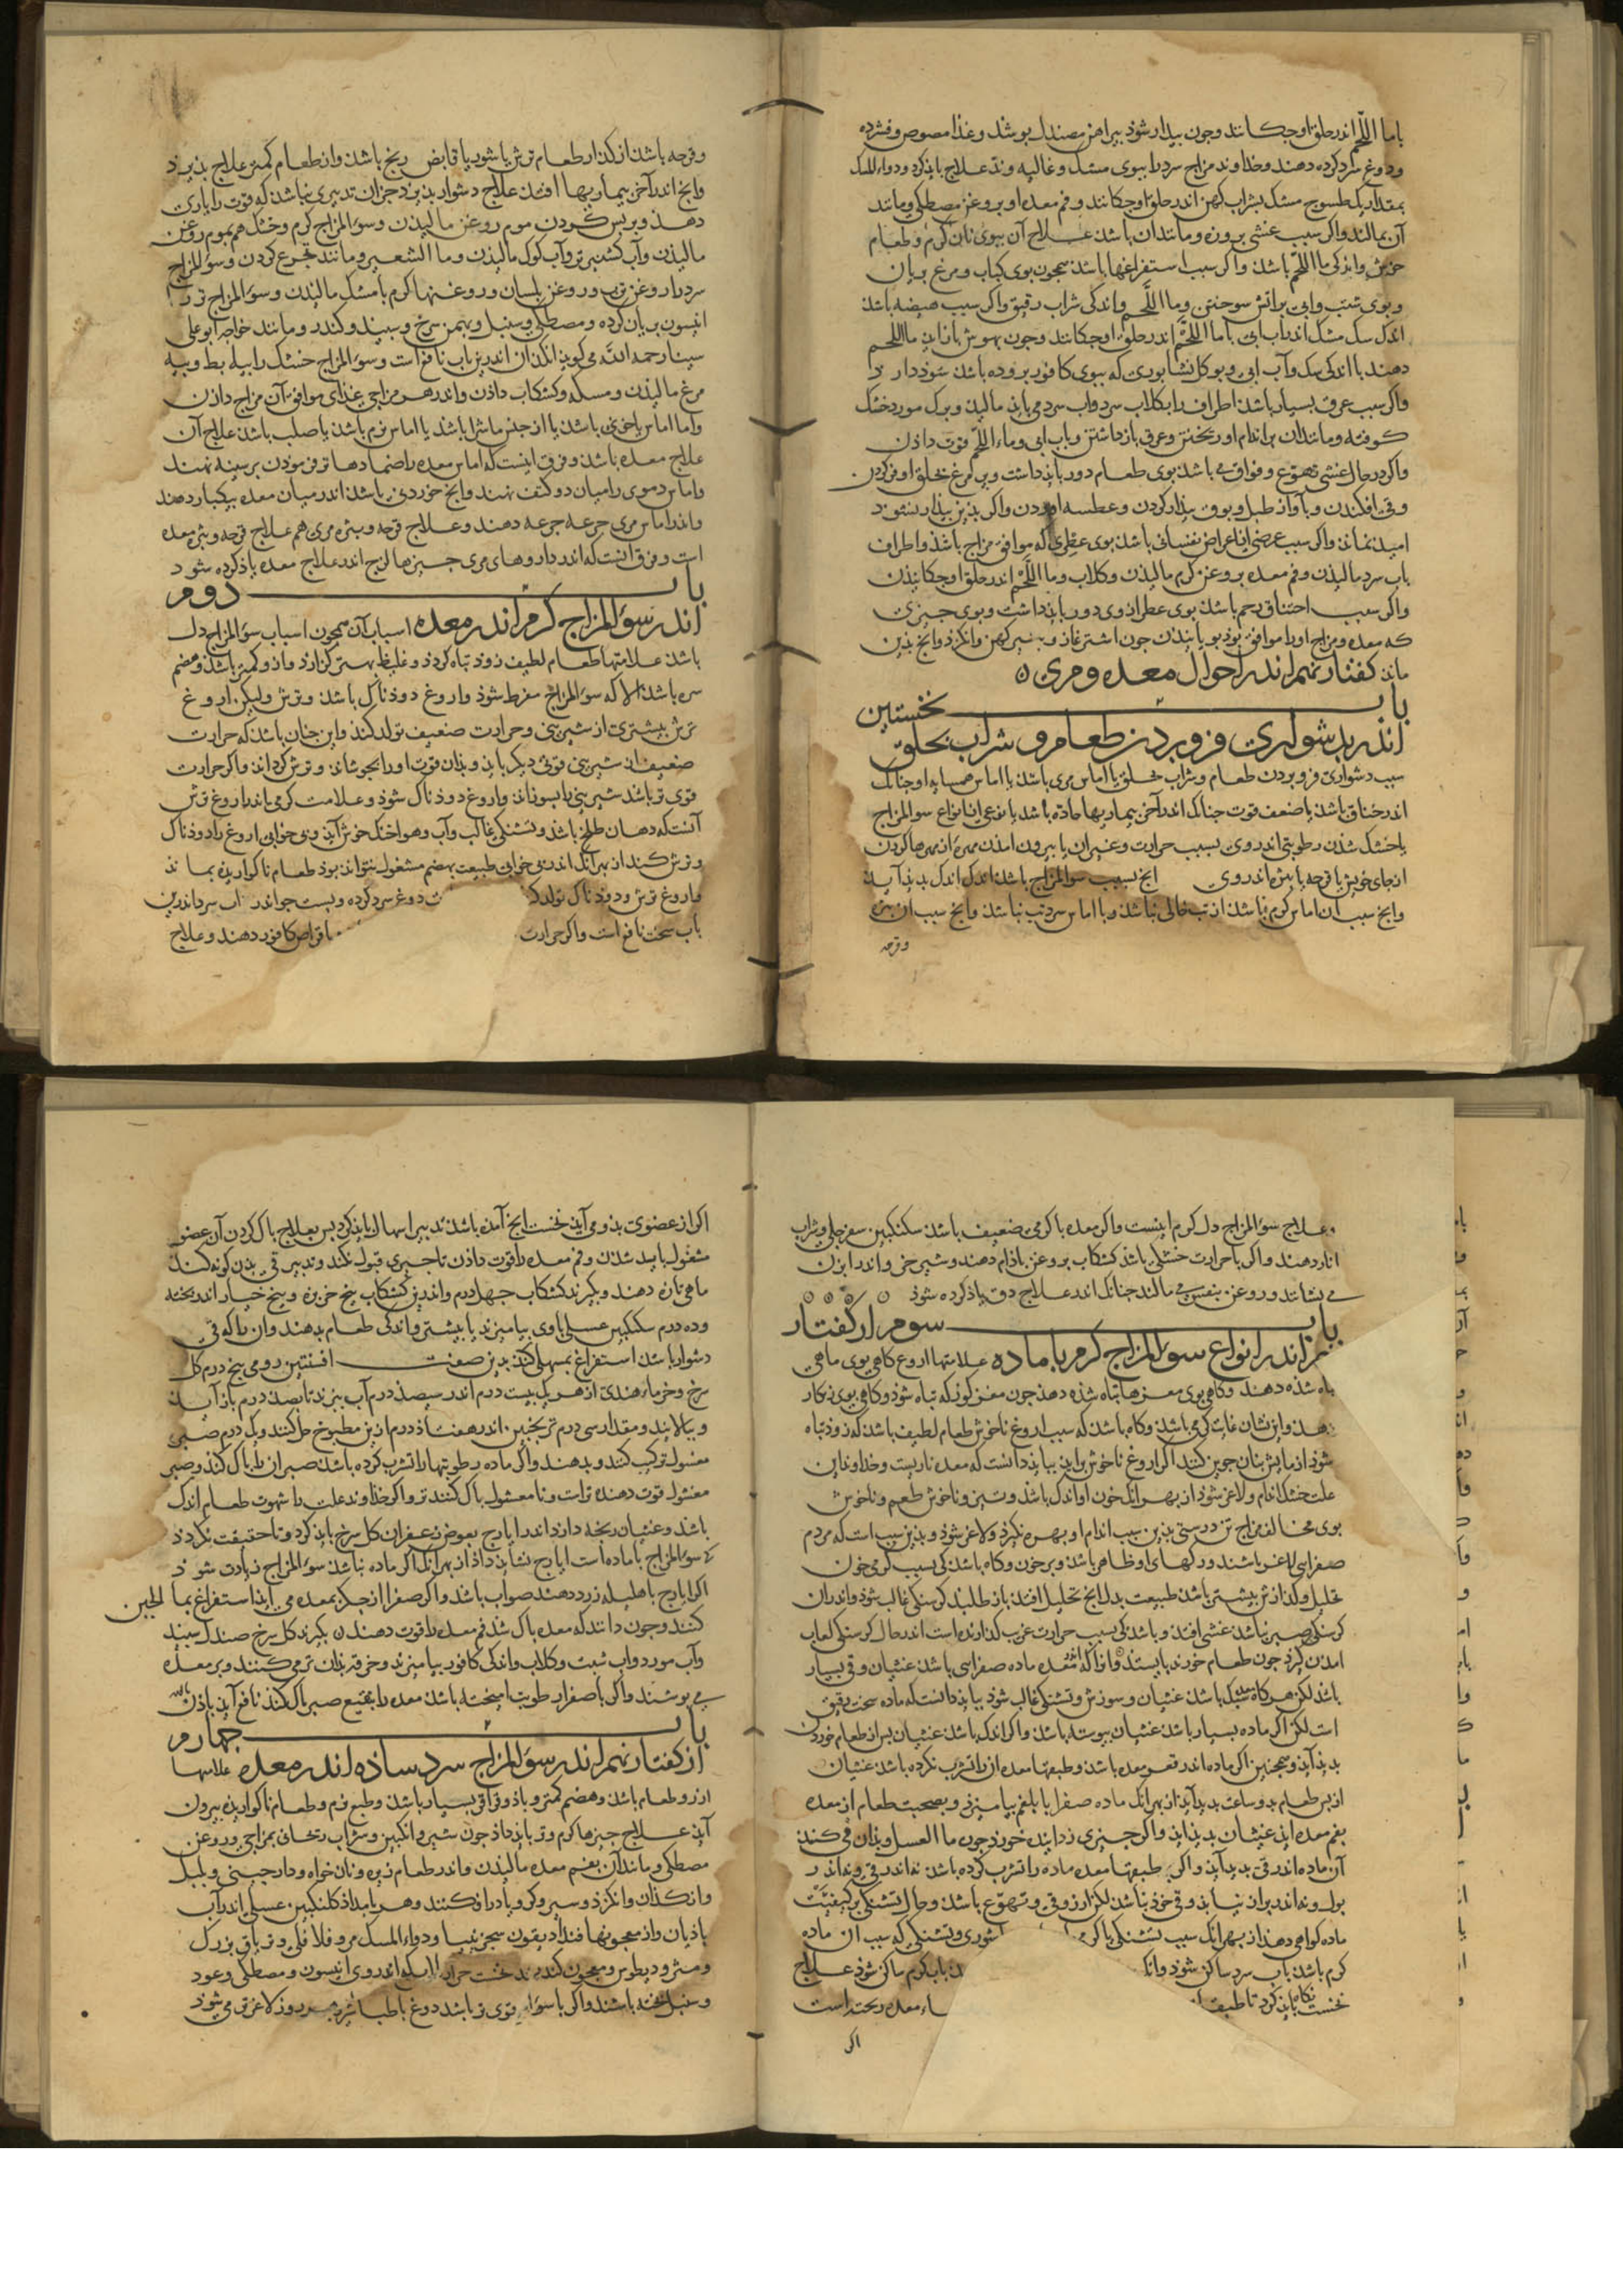 با ما اللحم اندر حلق او چکانند وچون بیدار شوذ پیراهن مصندل بوشد وغذا مصوص وفشرده
ودوغ سرد کرده دهند وخداوند مزاج سرد را ببوی مشک وغالیه وند علاج باید کرد ودواء المسک
بمقدار یک طسوج مشک بشراب کهن اندر حلق او چکانند وفم معده او بروغن مصطکی ومانند
آن بمالند واکر سبب غشی بروزه ومانند ان باشد علاج آن ببوی نان کرم وطعام
خوش واندکی ما اللحم باشد واکر سبب استفراغها باشد همچون بوی کباب ومرغ بریان
وبوی شبت وابی برآتش سوختن وما اللحم واندکی شراب رقیق واکر سبب هیضه باشد
اندک سک مشک اندر آب ابی با ما اللحم اندر حلق او چکانند وچون بهوش باز اید ما اللحم
دهند با اندکی سک وآب ابی وبوی کل نشابوری که ببوی کافور پروده باشد سود دارد
واکر سبب عرق بسیار باشد اطراف را بکلاب سرد واب سرد می باید مالید وبرک مورد خشک
کوفته ومانند ان بر اندام او ریختن وعرق باز داشتن وباب ابی وماء اللحم قوت داذن
واکر در حال غشی تهوع وفواق می باشد بوی طعام دور باید داشت وپر مرغ بحلق او فرو کردن
وقی افکندن وبآواز طبل وبوق بیدار کردن وعطسه اوردن واکر بدین بیدار نشوذ
امید نماند واکر سبب عرضی از اعراض نفسانی باشد بوی عطری که موافق مزاج باشد واطراف
باب سرد مالیدن وفم معده بروغن کرم مالیدن وکلاب وما اللحم اندر حلق او چکانیدن
واکر سبب اختناق رحم باشد بوی عطر از وی دور باید داشت وبوی چیزی
که معده ومزاج او را موافق بود بویانیدن چون اشترغاز وپنیر کهن وانکزد وانچ بدین
ماند کفتار نهم اندر احوال معده ومری
باب نخستین
اندر بدشواری فرو بردن طعام وشراب بحلق
سبب دشواری فرو بردن طعام وشراب بحلق یا اماس مری باشد یا اماس همسایه او چنانک
اندر خناق باشد یا ضعف قوت چنانک اندر آخر بیماریها حاده باشد یا نوعی از انواع سوء المزاج
یا خشک شدن رطوبتی اندر وی بسبب حرارت وغیر ان یا بیرون امدن مهره از مهرها کردن
از جای خویش یا قرحه یا بثره اندر وی انچ بسبب سوء المزاج باشد اندک اندک بدید آید
وانچ سبب ان اماس کرم باشد از تب خالی نباشد وبا اماس سرد تب نباشد وانچ سبب ان بثره
وقرحه
وقرحه باشد از کذار طعام ترش یا شور یا قابض رنج باشد واز طعام کمتر علاج بذیرد
وانچ اندر آخر بیماریها افتد علاج دشوار بذیرد جز ان تدبیری نباشد که قوت را یاری
دهذ وبر پس کردن موم روغن مالیدن وسوء المزاج کرم وخشک هم بموم روغن
مالیدن وآب کشنیز تر وآب کوک مالیدن وما الشعیر ومانند تجرع کردن وسوء المزاج
سرد را روغن ترب وروغن بلسان وروغنها کرم با مشک مالیدن وسوء المزاج تر را
انیسون بریان کرده ومصطکی وسنبل وبهمن سرخ وسپید وکندر ومانند خواجه ابوعلی
سینا رحمه الله می کوید انکدان اندرین باب نافع است وسوء المزاج خشک را بپیه بط وپیه
مرغ مالیدن ومسکه وکشکاب داذن واندر هر مزاجی غذای موافق آن مزاج داذن
واما اماس یا خونی باشد یا از جنس ماشرا باشد یا اماس نرم باشد یا صلب باشد علاج آن
علاج معده باشد وفرق اینست که اماس معده را ضمادها ترفرموذن بر سینه نهند
واماس دموی را میان دو کتف نهند وانچ خوردنی باشد اندر میان معده بیکبار دهند
واندر اماس مری جرعه جرعه دهند وعلاج قرحه وبثره مری هم علاج قرحه وبثر معده
است وفرق انست که اندر داروهای مری چیزها لزج اندر علاج معده یاذ کرده شود
باب دوم
اندر سوء المزاج کرم اندر معده اسباب آن همچون اسباب سوء المزاج دل
باشد علامتها طعام لطیف زود تباه کردد وغلیظ بهتر کزارد وارزو کمتر باشد وهضم
سره باشد الا که سوء المزاج مفرط شوذ واروغ دودناک باشد وترش ولیکن اروغ
ترش بیشتری از شیرینی وحرارت ضعیف تولد کند واین جنان باشد که حرارت
ضعیف ان شیرینی قوتی دیکر یابد وبذان قوت اورا بجوشاند وترش کرداند واکر حرارت
قوی تر باشد شیرینی بسوزاند واروغ دودناک شوذ وعلامت کرمی باندر اروغ ترش
آنست که دهان طلخ باشذ وتشنکی غالب وآب وهوا خنک خوش آید وبی خوابی اروغ را دودناک
وترش کند از بهر آنک اندر بی خوابی طبیعت بهضم مشغول نتواند بود طعام ناکوارده بماند
واروغ ترش ودودناک تولد کند دوغ سرد کرده وپست جو اندر اب سرد اندرین
باب سخت نافع است واکر حرارت با قراص کافور دهند وعلاج
علاج سوء المزاج دل کرم اینست واکر معده با کرمی ضعیف باشد سکنکبین سفرجلی وشراب
انار دهند واکر با حرارت خشکی باشد کشکاب بروغن باذام دهند وشیر خر واندر ابزن
می نشانند وروغن بنفشه می مالند جنانک اندر علاج دق یاذ کرده شوذ
باب سوم از کفتار
نهم اندر انواع سوء المزاج کرم با ماده علامتها اروغ کاهی بوی ماهی
تباه شده دهد وکاهی بوی مغزها تباه شده دهذ چون مغز کوز که تباه شوذ وکاهی بوی زنکار
دهذ واین نشان غایت کرمی باشد وکاه باشد که سبب اروغ ناخوش طعام لطیف باشد که زود تباه
شوذ ازمایش بنان جوین کنند اکر اروغ ناخوش برآید بباید دانست که معده ناریست وخداوند این
علت خشک اندام ولاغر شوذ از بهر انک خون او اندک باشد وتیز وناخوش طعم وناخوش
بوی مخالف مزاج تن درستی بدین سبب اندام او بهره نکیرد ولاغر شوذ وبدین سبب است که مردم
صفرایی لاغر باشند ورکهای او ظاهر باشد وپر خون وکاه باشد که بسبب کرمی خون
تحلیل ولذاع بیشتر باشد طبیعت بدل انچ تحلیل افتد باز طلبد کرسنکی غالب شوذ واندران
کرسنکی صبر نباشد غشی افتد وباشد که بسبب حرارت غریب کدازنده است اندر حال کرسنکی لعاب
امدن کیرد چون طعام خورند بایستد واز آنکه معده ماده صفرایی باشد غثیان وقی بسیار
باشد لکن هر کاه سبک باشد غثیان وسوزش وتشنکی غالب شوذ بباید دانست که ماده سخت رقیق
است لکن اکر ماده بسیار باشد غثیان پیوسته باشد واکر اندک باشد غثیان پس از طعام خوردن
بدید آید وهمچنین اکر ماده اندر قعر معده باشد وطبقها معده ان را تشرب نکرده باشد غثیان
از پس طعام بدو ساعت بدید آید از بهر انک ماده صفرا یا بلغم بیامیزد وبصحبت طعام از معده
بفم معده اید غثیان بدید اید واکر چیزی زداینده خورذ چون ما العسل وبذان قی کنذ
آن ماده اندر قی بدید آید واکر طبقها معده ماده را تشرب کرده باشد نه اندر قی ونه اندر
بول ونه اندر براز نیابد وقی خود نباشد لکن ارزو قی وتهوع باشد وحال تشنکی بر کیفیت
ماده کواهی دهد از بهر انک سبب تشنکی یا کرمی شوری وتشنکی که سبب ان ماده
کرم باشد باب سرد ساکن شوذ وانک باب کرم ساکن شوذ علاج
نخست نکاه باید کرد تا طبقه معده ریخته است
اکر
اکر از عضوی بدو می آید نخست انچ آمده باشد تدبیر اسهال باید کرد پس بعلاج پاک کردن آن عضو
مشغول باید شدن وفم معده را قوت داذن تا چیزی قبول نکند وتدبیر قی بدین کونه کنند
ماهی تازه دهند وبکیرند کشکاب چهل درم واندرین کشکاب بیخ خربزه وبیخ خیار اندر پخته
وده درم سکنکبین عسلی با وی بیامیزند یا بیشتر واندکی طعام بدهند وان را که قی
دشوار باشد استفراغ بمسهلی کنند بدین صفت افسنتین رومی پنج درم کل
سرخ وخرماء هندی از هر یک بیست درم اندر سیصد درم آب بپزند تا بصد درم باز آید
وبپالایند ومقدار سی درم ترنجبین اندر هفتاد درم ازین مطبوخ حل کنند ویک درم صبر
مغسول ترکیب کنند وبدهند واکر ماده رطوبتها را تشرب کرده باشد صبر ان را پاک کند وصبر
مغسول قوت دهنده تر است ونامغسول پاک کننده تر واکر خداوند علت را شهوت طعام اندک
باشد وغثیان رنجه دارد اندر ایارج بعوض زعفران کل سرخ باید کرد وتا حقیقت نکردذ
که سوء المزاج با ماده است ایارج نشاید داذ از بهر انک اکر ماده نباشد سوء المزاج زیادت شود
اکر ایارج با هلیله زرد دهند صواب باشد واکر صفرا از جکر بمعده می آید استفراغ بما الجبن
کنند وچون دانند که معده پاک شد فم معده را قوت دهند بکیرند کل سرخ صندل سپید
وآب مورد واب شبت وکلاب واندکی کافور بیامیزند وخرقه بذان تر می کنند وبر معده
می پوشند واکر با صفرا رطوبت امیخته باشد معده را بنقیع صبر پاک کنند نافع آید باذن الله
باب چهارم
از کفتار نهم اندر سوء المزاج سرد ساذه اندر معده علامتها
ارزو طعام باشد وهضم کمتر وباذ وقراقر بسیار باشد وطبع نرم وطعام ناکوارده بیرون
آید علاج چیزها کرم وتر باید داذ چون شیر وانکبین وشراب ریحانی بمزاج وروغن
مصطکی ومانند آن بفم معده مالیدن واندر طعام زیره ونان خواه ودارچینی وپلپل
وانکذان وانکزد وسیر وکرویا در افکنند وهر بامداذ کلنکبین عسلی اندر آب
باذیان واز معجونها فنداذیقون سجزینیا ودواء المسک مر وفلافلی وتریاق بزرک
ومثرودیطوس ومعجون کندر اندر وی انیسون ومصطکی وعود
وسنبل پخته باشند واکر با سوء قوی تر باشد دوغ با طباشیر روز لاغرتر می شوذ